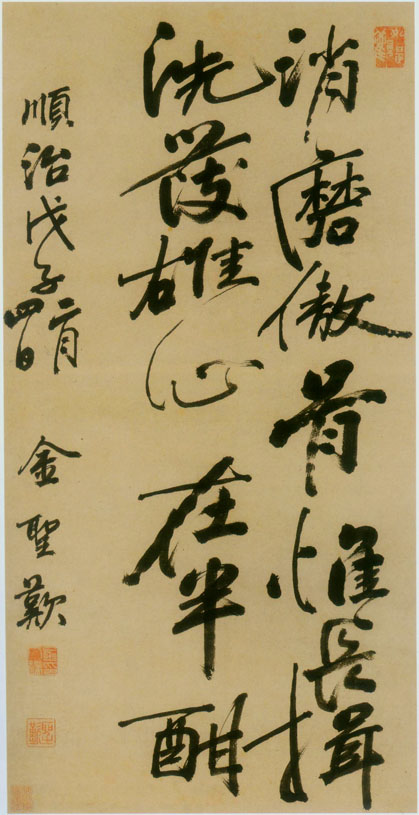 消磨傲骨惟長揖
洗發雄心在半酣
順治戊子二月四日 金聖歎